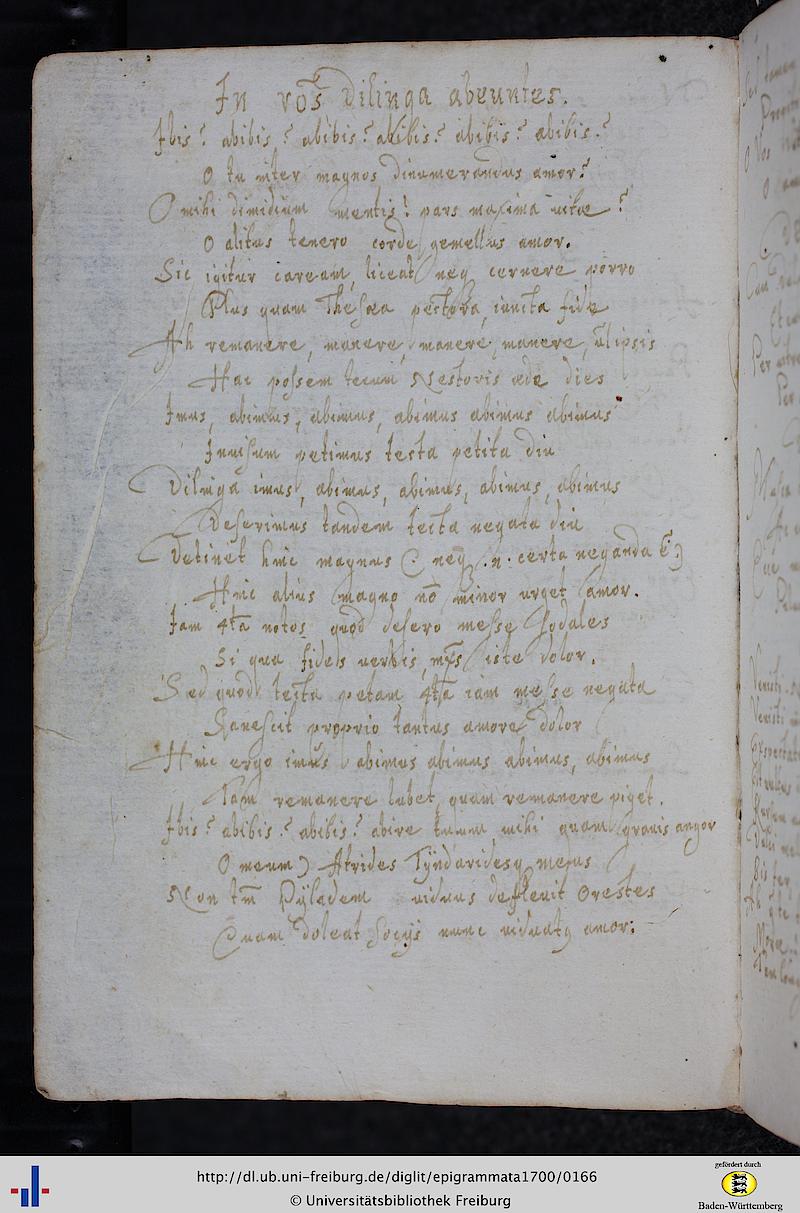 In vos̃ Dilinga abeuntes.
Ibis? abibis? abibis? abibis? abibis? abibis?
O tu inter magnos dinumerandus amor?
O mihi dimidium mentis! pars maxima vitæ?
O alitus tenero corde gemellus amor.
Sic igitur caream, liceat neq cernere porro
Plus quam Thesæa pectora, iuncta fide
Ah remanere, manere, manere, manere, ipsis
Hac possem tecum Nestoris æde dies
Imus, abimus, abimus, abimus abimus abimus
Inuisum petimus testa petita diu
Dilinga imus, abimus, abimus, abimus, abimus
Deserimus tandem tecta negata diu
Detinet hinc magnus (: neq .n. certa neganda ẽ:)
Hinc alius magno nõ minor urget amor.
Iam 4ta notos quod desero messe sodales
Si qua fides verbis, iste dolor.
Sed quod tecta petam 4ta iam messe negata
Sanescit proprio tantus amore dolor
Hinc ergo imus abimus abimus abimus, abimus
Tam remanere lubet, quam remanere piget.
Ibis? abibis? abibis? abire tuum mihi quam gravis angor
O meum) Atrides Tÿndaridesq metus
Non tm̃ Pÿladem viduus deflevit Orestes
Quam doleat socijs nunc viduatq amor:
http://dl.ub.uni-freiburg.de/diglit/epigrammata1700/0166
© Universitätsbibliothek Freiburg
gefördert durch
Baden-Württemberg